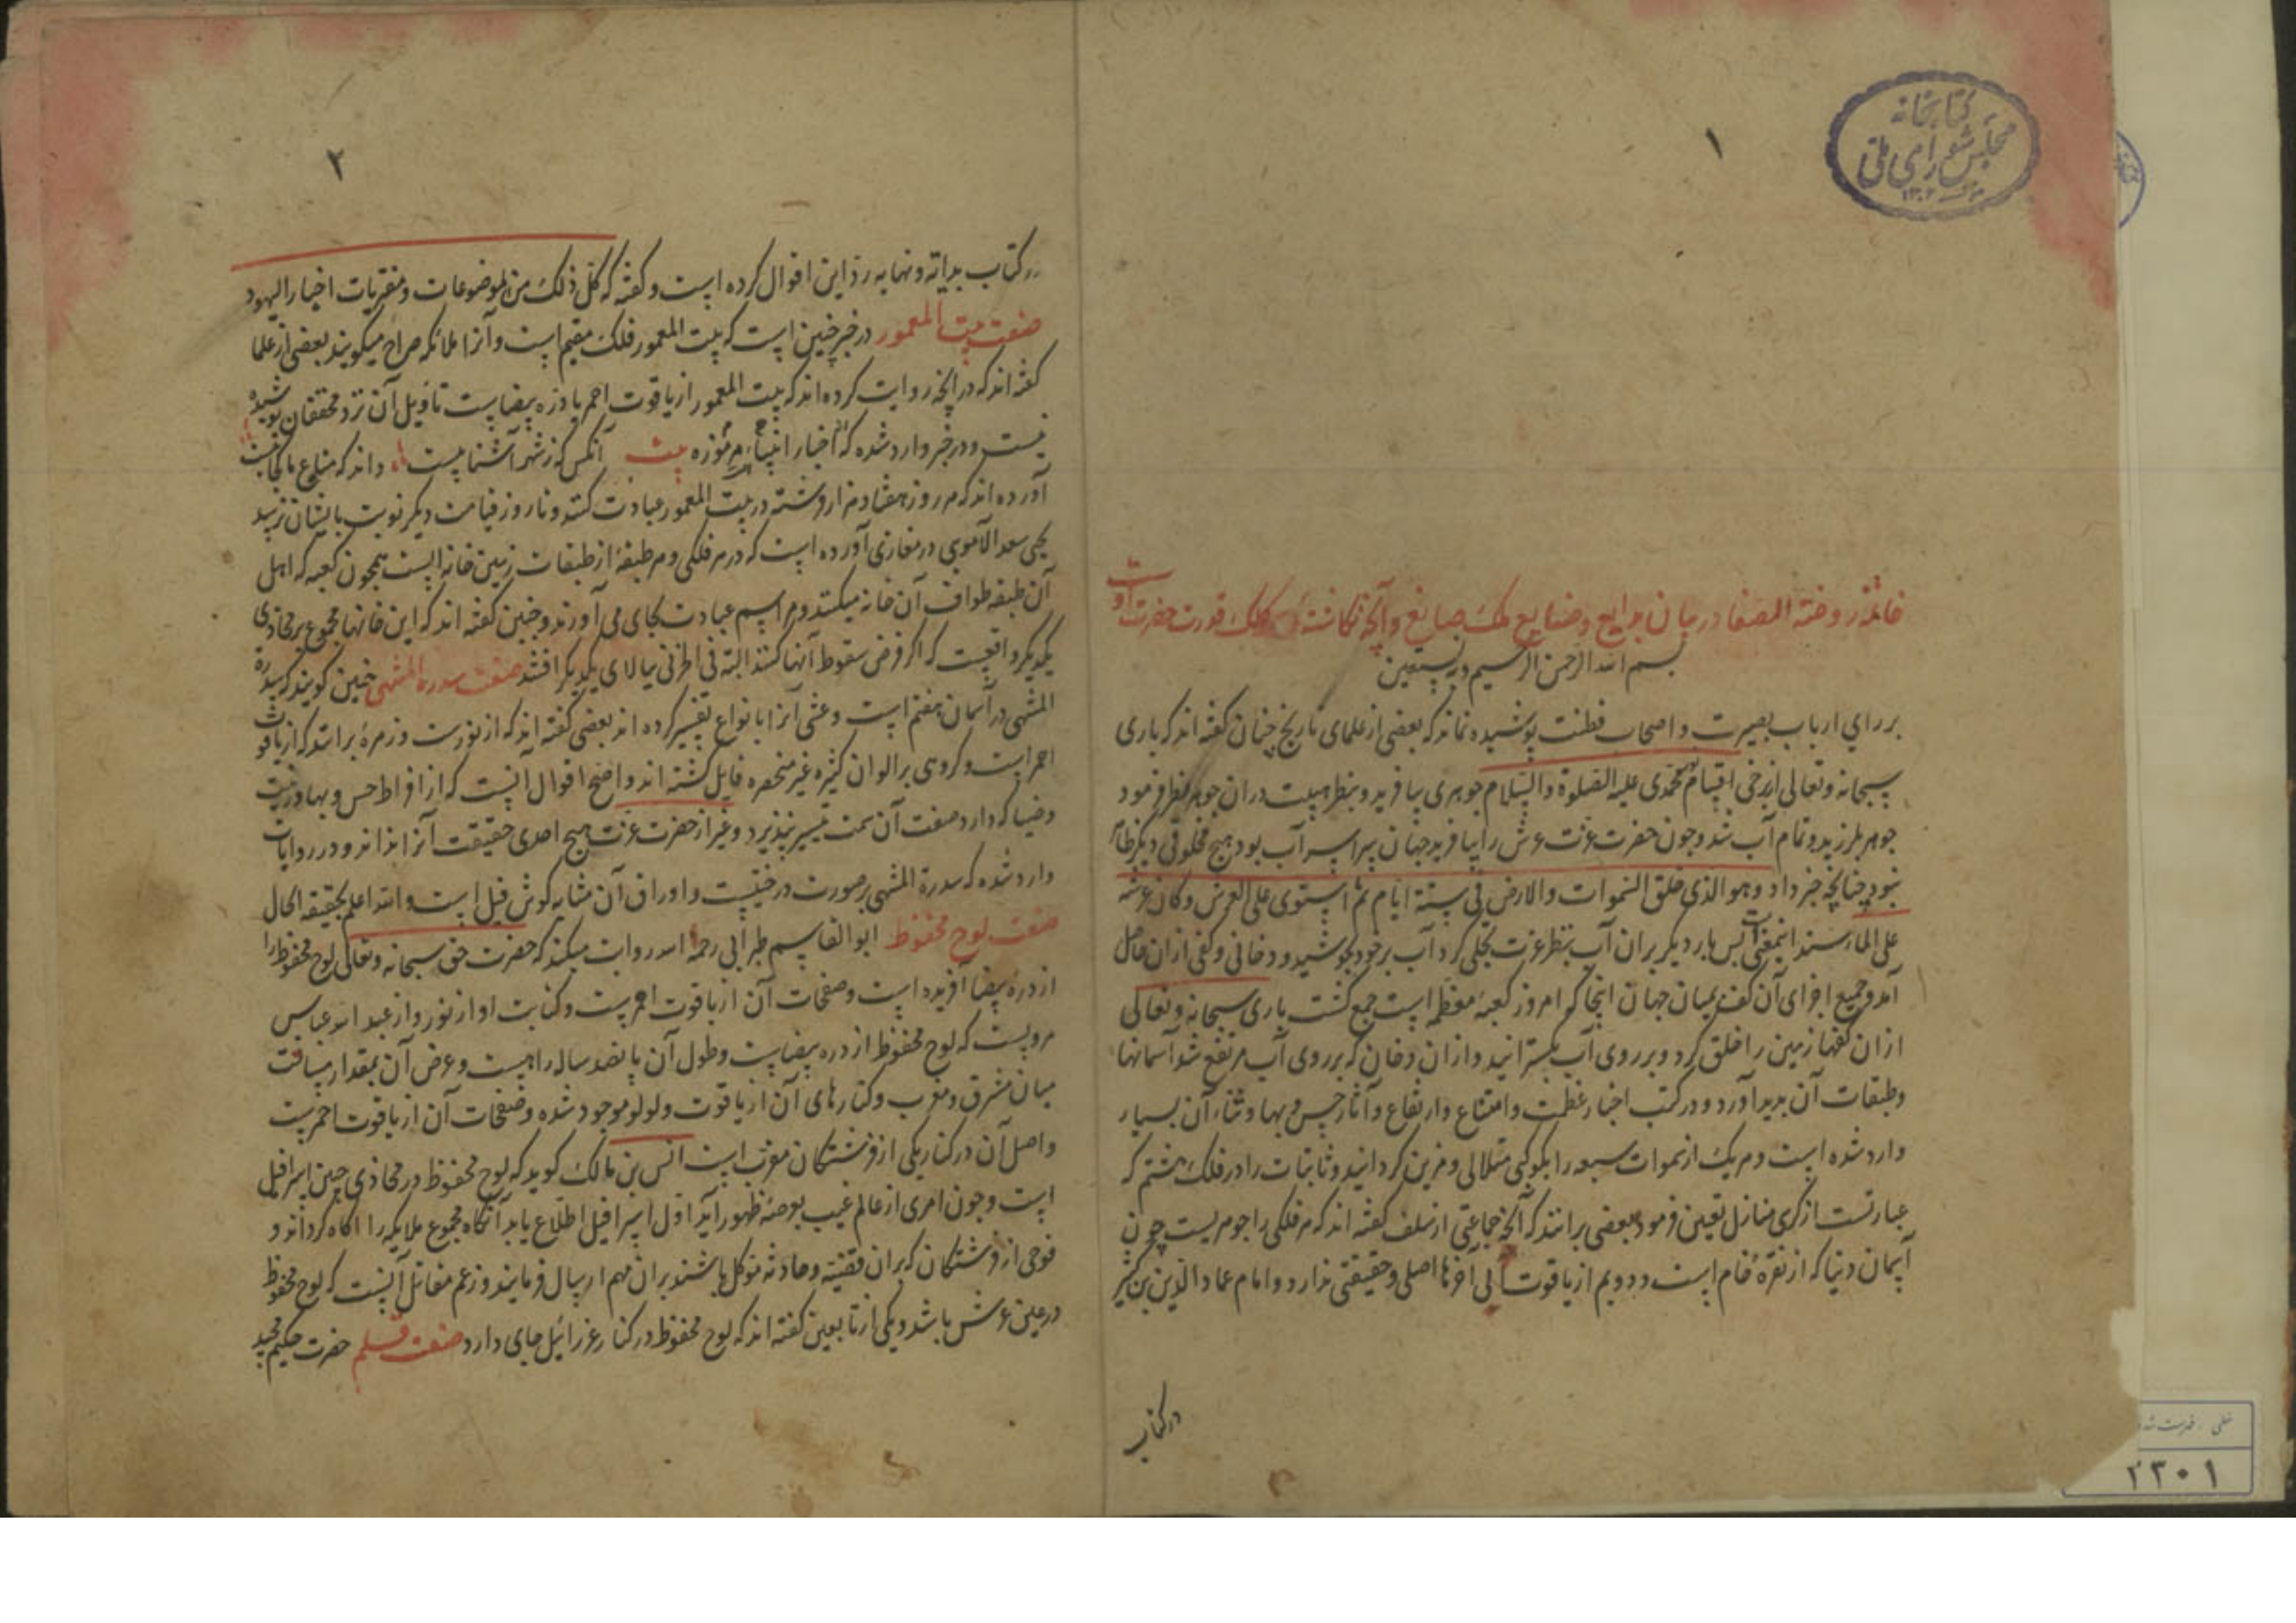 کتابخانه
مجلس شورای ملی
۱
خاتمه روضة الصفا در بیان بدایع و صنایع ملک صانع و آنچه نگاشتهٔ کلک قدرت حضرت اوست
بسم الله الرحمن الرحیم وبه نستعین
بر رای ارباب بصیرت و اصحاب فطنت پوشیده نماند که بعضی از علمای تاریخ چنان گفته اند که باری
سبحانه و تعالی از محمدی علیه الصلوة والسلام جوهری بیافرید و بنظر هیبت در ان جوهر نظر فرمود
جوهر بلرزید و تمام آب شد و چون حضرت عزت عرش را بیافرید جهان سراسر آب بود هیچ مخلوقی دیگر ظاهر
نبود چنانچه خبر داد وهو الذی خلق السموات والارض فی ستة ایام ثم استوی علی العرش وکان عرشه
علی الماء اینمعنیست پس بار دیگر بران آب بنظر عزت تجلی کرد آب برخود بجوشید و دخانی و کفی ازان حاصل
آمد و جمیع اجزای آن کف بمیان جهان اینجا که امروز کعبهٔ معظم است جمع گشت باری سبحانه و تعالی
ازان کفها زمین را خلق کرد و بر روی آب بگسترانید و ازان دخان که بر روی آب مرتفع شد آسمانها
و طبقات آن پدید آورد و در کتب اخبار عظمت و امتناع و ارتفاع و آثار حسن و بها و ثناء آن بسیار
وارد شده است و هر یک از سموات سبعه را بکوکبی متلالی و مزین گردانید و ثابتات را در فلک هشتم که
عبارتست از کرسی منازل تعیین فرمود بعضی برانند که آنچه جماعتی از سلف گفته اند که هر فلکی را جوهریست چون
آسمان دنیا که از نقرهٔ خام است و دویم از یاقوت الی آخرها اصلی و حقیقتی ندارد و امام عماد الدین بن کثیر
در کتاب
۲۳۰۱
۲
در کتاب بدایة و نهایه رد این اقوال کرده است و گفته که کل ذلک من الموضوعات و مفتریات اخبار الیهود
صفت بیت المعمور در خبر چنین است که بیت المعمور فلک مقیم است و آنرا ملائکه صراح میگویند بعضی از علما
گفته اند که در آنچه روایت کرده اند که بیت المعمور از یاقوت احمر یا دره بیضاست تاویل آن نزد محققان پوشیده
نیست و در خبر وارد شده که اخبار انبیاء مرموزه بیت آنکس که ز شهر آشناییست داند که متاع ما کجاییست
آورده اند که هر روز هفتاد هزار فرشته در بیت المعمور عبادت کنند و تا روز قیامت دیگر نوبت بایشان نرسد
یحیی سعد الاموی در مغازی آورده است که در هر فلکی و هر طبقهٔ از طبقات زمین خانه ایست همچون کعبه که اهل
آن طبقه طواف آن خانه میکنند و مراسم عبادت بجای می آورند و چنین گفته اند که این خانها مجموع بر محاذی
یکدیگر واقعست که اگر فرض سقوط آنها کنند البته بالای یکدیگر افتند صفت سدرة المنتهی چنین گویند که سدرة
المنتهی در آسمان هفتم است و غشی آنرا بانواع تفسیر کرده اند بعضی گفته اند که از نورست و زمرهٔ برانند که از یاقوت
احمر است و گروهی بر الوان کثیره غیر منحصره قایل گشته اند و اصح اقوال آنست که از افراط حسن و بها و زینت
و ضیا که دارد صفت آن سمت تیسیر نپذیرد و غیر از حضرت عزت هیچ احدی حقیقت آنرا نداند و در روایات
وارد شده که سدرة المنتهی بر صورت درختیست و اوراق آن مشابه گوش فیل است والله اعلم بحقیقة الحال
صفت لوح محفوظ ابو القاسم طبرانی رحمه الله روایت میکند که حضرت حق سبحانه و تعالی لوح محفوظ را
از درهٔ بیضا آفریده است و صفحات آن از یاقوت احمرست و کتابت او از نور و از عبد الله عباس
مرویست که لوح محفوظ از دره بیضاست و طول آن پانصد ساله راهست و عرض آن بمقدار مسافت
میان مشرق و مغرب و کنارهای آن از یاقوت و لولو موجود شده و صفحات آن از یاقوت احمرست
و اصل آن در کنار یکی از فرشتگان مقرب است انس بن مالک گوید که لوح محفوظ در محاذی جبین اسرافیل
است و چون امری از عالم غیب بعرصهٔ ظهور آید اول اسرافیل اطلاع یابد آنگاه مجموع ملایکه را آگاه گرداند و
فوجی از فرشتگان که بران قضیه و حادثه موکل باشند بران مهم ارسال فرمایند و زعم مقاتل آنست که لوح محفوظ
در عین عرش باشد و یکی از تابعین گفته اند که لوح محفوظ در کنار عزرائیل جای دارد صفت قلم حضرت حکیم مجید